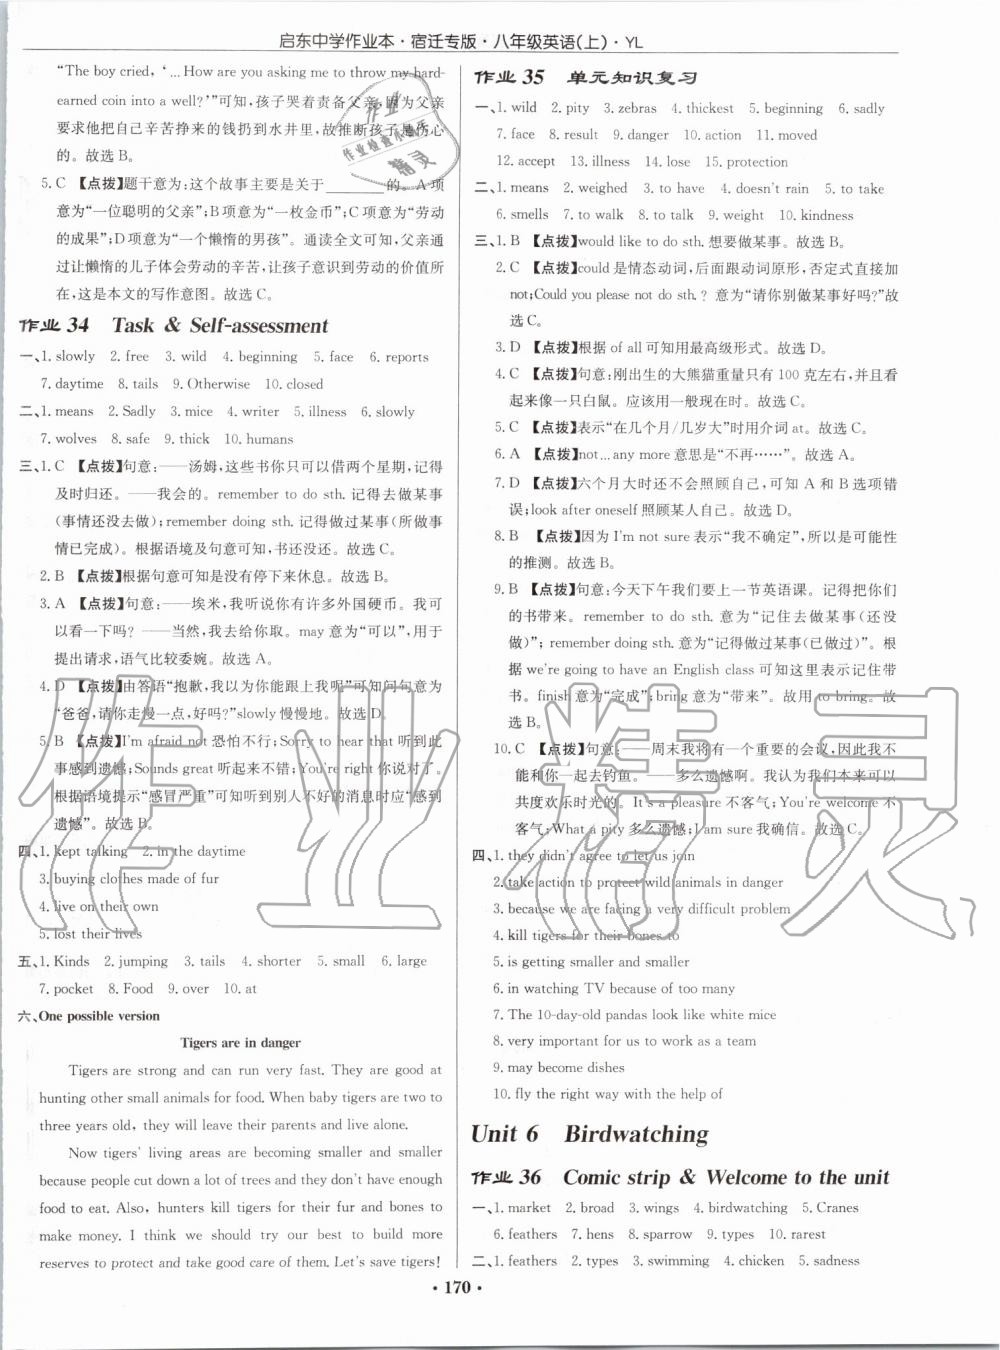 启东中学作业本·宿迁专版·八年级英语(上)·YL
“The boy cried,‘…How are you asking me to throw my hard-
earned coin into a well?’”可知,孩子哭着责备父亲,因为父亲
要求他把自己辛苦挣来的钱扔到水井里,故推断孩子是伤心
的。故选B。
5. C 【点拨】题干意为:这个故事主要是关于________的。A项
意为“一位聪明的父亲”;B项意为“一枚金币”;C项意为“劳动
的成果”;D项意为“一个懒惰的男孩”。通读全文可知,父亲通
过让懒惰的儿子体会劳动的辛苦,让孩子意识到劳动的价值所
在,这是本文的写作意图。故选C。
作业34 Task & Self-assessment
一、1. slowly 2. free 3. wild 4. beginning 5. face 6. reports
7. daytime 8. tails 9. Otherwise 10. closed
二、1. means 2. Sadly 3. mice 4. writer 5. illness 6. slowly
7. wolves 8. safe 9. thick 10. humans
三、1. C 【点拨】句意:——汤姆,这些书你只可以借两个星期,记得
及时归还。——我会的。remember to do sth. 记得去做某事
(事情还没去做);remember doing sth. 记得做过某事(所做事
情已完成)。根据语境及句意可知,书还没还。故选C。
2. B 【点拨】根据句意可知是没有停下来休息。故选B。
3. A 【点拨】句意:——埃米,我听说你有许多外国硬币。我可
以看一下吗?——当然,我去给你取。may意为“可以”,用于
提出请求,语气比较委婉。故选A。
4. D 【点拨】由答语“抱歉,我以为你能跟上我呢”可知问句意为
“爸爸,请你走慢一点,好吗?”slowly慢慢地。故选D。
5. B 【点拨】I'm afraid not恐怕不行;Sorry to hear that听到此
事感到遗憾;Sounds great听起来不错;You're right你说对了。
根据语境提示“感冒严重”可知听到别人不好的消息时应“感到
遗憾”。故选B。
四、1. kept talking 2. in the daytime
3. buying clothes made of fur
4. live on their own
5. lost their lives
五、1. Kinds 2. jumping 3. tails 4. shorter 5. small 6. large
7. pocket 8. Food 9. over 10. at
六、One possible version
Tigers are in danger
Tigers are strong and can run very fast. They are good at
hunting other small animals for food. When baby tigers are two to
three years old, they will leave their parents and live alone.
Now tigers' living areas are becoming smaller and smaller
because people cut down a lot of trees and they don't have enough
food to eat. Also, hunters kill tigers for their fur and bones to
make money. I think we should try our best to build more
reserves to protect and take good care of them. Let's save tigers!
作业35 单元知识复习
一、1. wild 2. pity 3. zebras 4. thickest 5. beginning 6. sadly
7. face 8. result 9. danger 10. action 11. moved
12. accept 13. illness 14. lose 15. protection
二、1. means 2. weighed 3. to have 4. doesn't rain 5. to take
6. smells 7. to walk 8. to talk 9. weight 10. kindness
三、1. B 【点拨】would like to do sth. 想要做某事。故选B。
2. C 【点拨】could是情态动词,后面跟动词原形,否定式直接加
not;Could you please not do sth.?意为“请你别做某事好吗?”故
选C。
3. D 【点拨】根据of all可知用最高级形式。故选D。
4. C 【点拨】句意:刚出生的大熊猫重量只有100克左右,并且看
起来像一只白鼠。应该用一般现在时。故选C。
5. C 【点拨】表示“在几个月/几岁大”时用介词at。故选C。
6. A 【点拨】not…any more意思是“不再……”。故选A。
7. D 【点拨】六个月大时还不会照顾自己,可知A和B选项错
误;look after oneself照顾某人自己。故选D。
8. B 【点拨】因为I'm not sure表示“我不确定”,所以是可能性
的推测。故选B。
9. B 【点拨】句意:今天下午我们要上一节英语课。记得把你们
的书带来。remember to do sth. 意为“记住去做某事(还没
做)”;remember doing sth. 意为“记得做过某事(已做过)”。根
据we're going to have an English class可知这里表示记住带
书。finish意为“完成”;bring意为“带来”。故用to bring。故
选B。
10. C 【点拨】句意:——周末我将有一个重要的会议,因此我不
能和你一起去钓鱼。——多么遗憾啊。我认为我们本来可以
共度欢乐时光的。It's a pleasure不客气;You're welcome不
客气;What a pity多么遗憾;I am sure我确信。故选C。
四、1. they didn't agree to let us join
2. take action to protect wild animals in danger
3. because we are facing a very difficult problem
4. kill tigers for their bones to
5. is getting smaller and smaller
6. in watching TV because of too many
7. The 10-day-old pandas look like white mice
8. very important for us to work as a team
9. may become dishes
10. fly the right way with the help of
Unit 6 Birdwatching
作业36 Comic strip & Welcome to the unit
一、1. market 2. broad 3. wings 4. birdwatching 5. Cranes
6. feathers 7. hens 8. sparrow 9. types 10. rarest
二、1. feathers 2. types 3. swimming 4. chicken 5. sadness
·170·
作业精灵